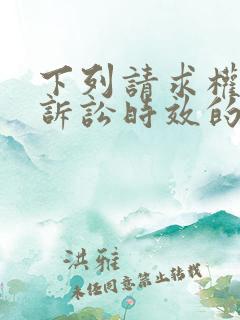 下列請求權
訴訟時效的
洪雅
未经同意禁止转载